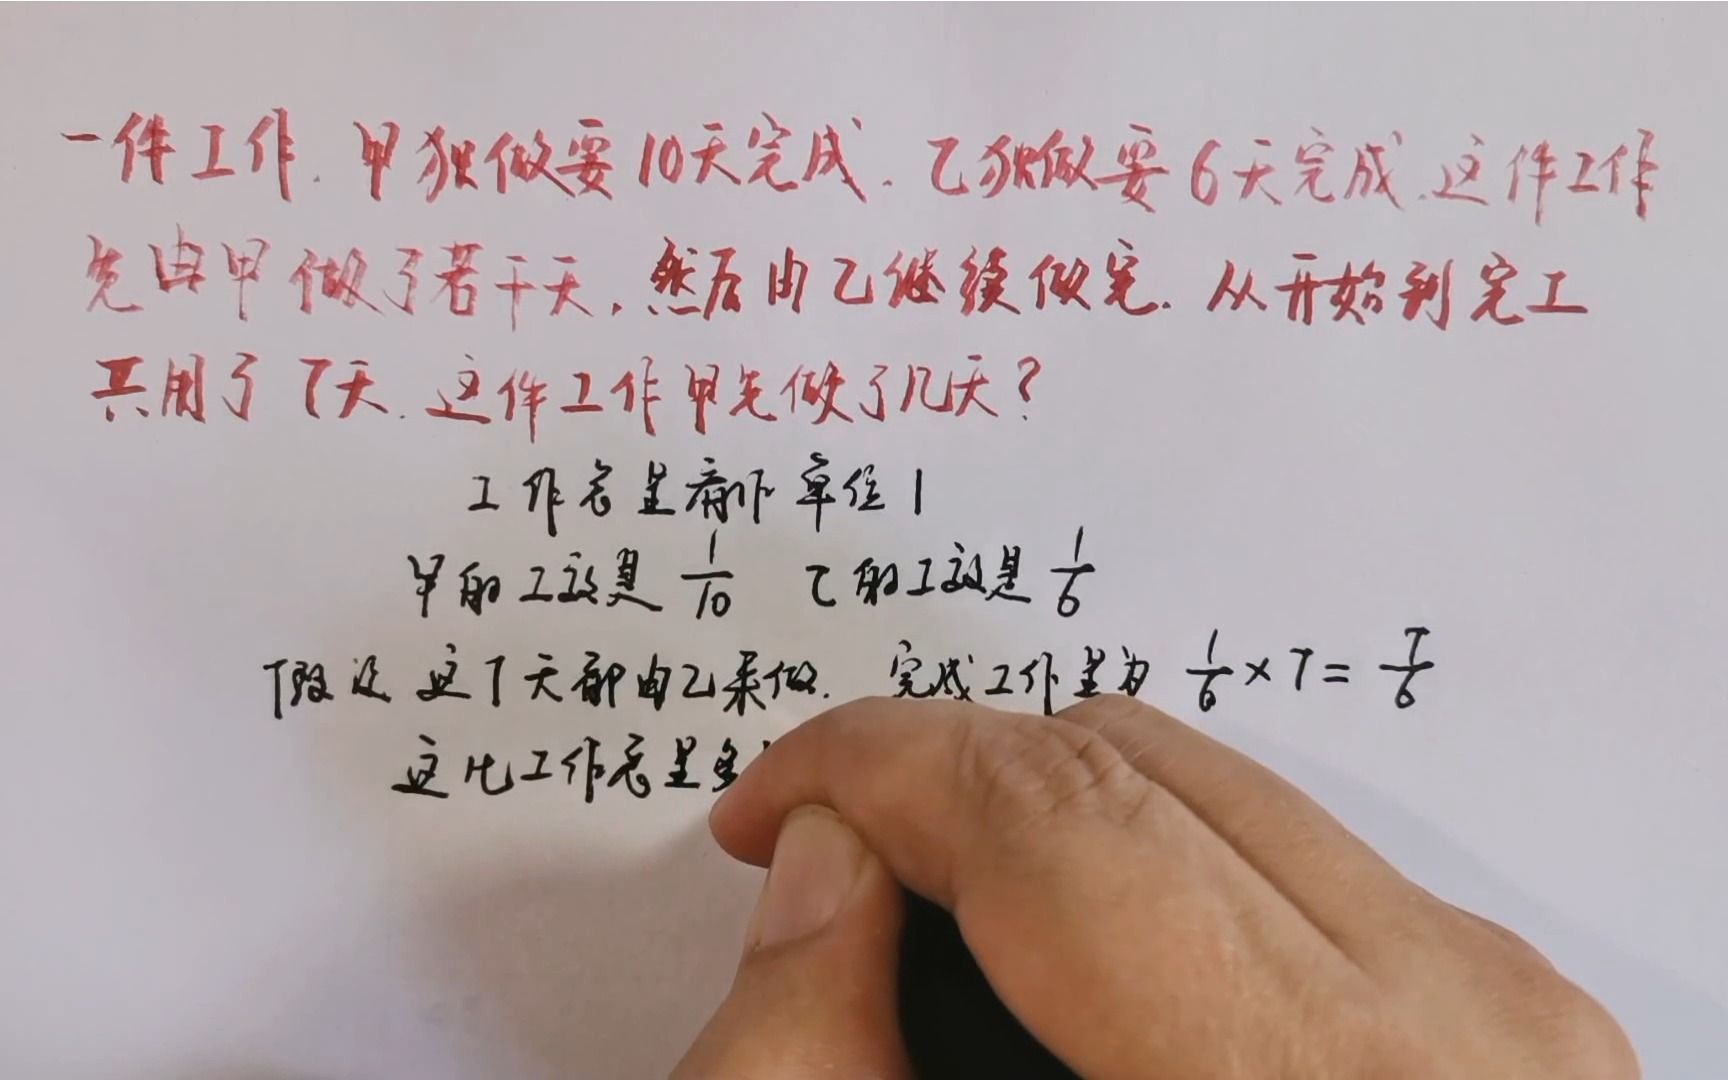 一件工作.甲独做要10天完成.乙独做要6天完成.这件工作
先由甲做了若干天,然后由乙继续做完.从开始到完工
共用了7天.这件工作甲先做了几天?
工作总量看作单位1
甲的工效是1/10 乙的工效是1/6
假设这7天都由乙来做.完成工作量为 1/6×7=7/6
这比工作总量多